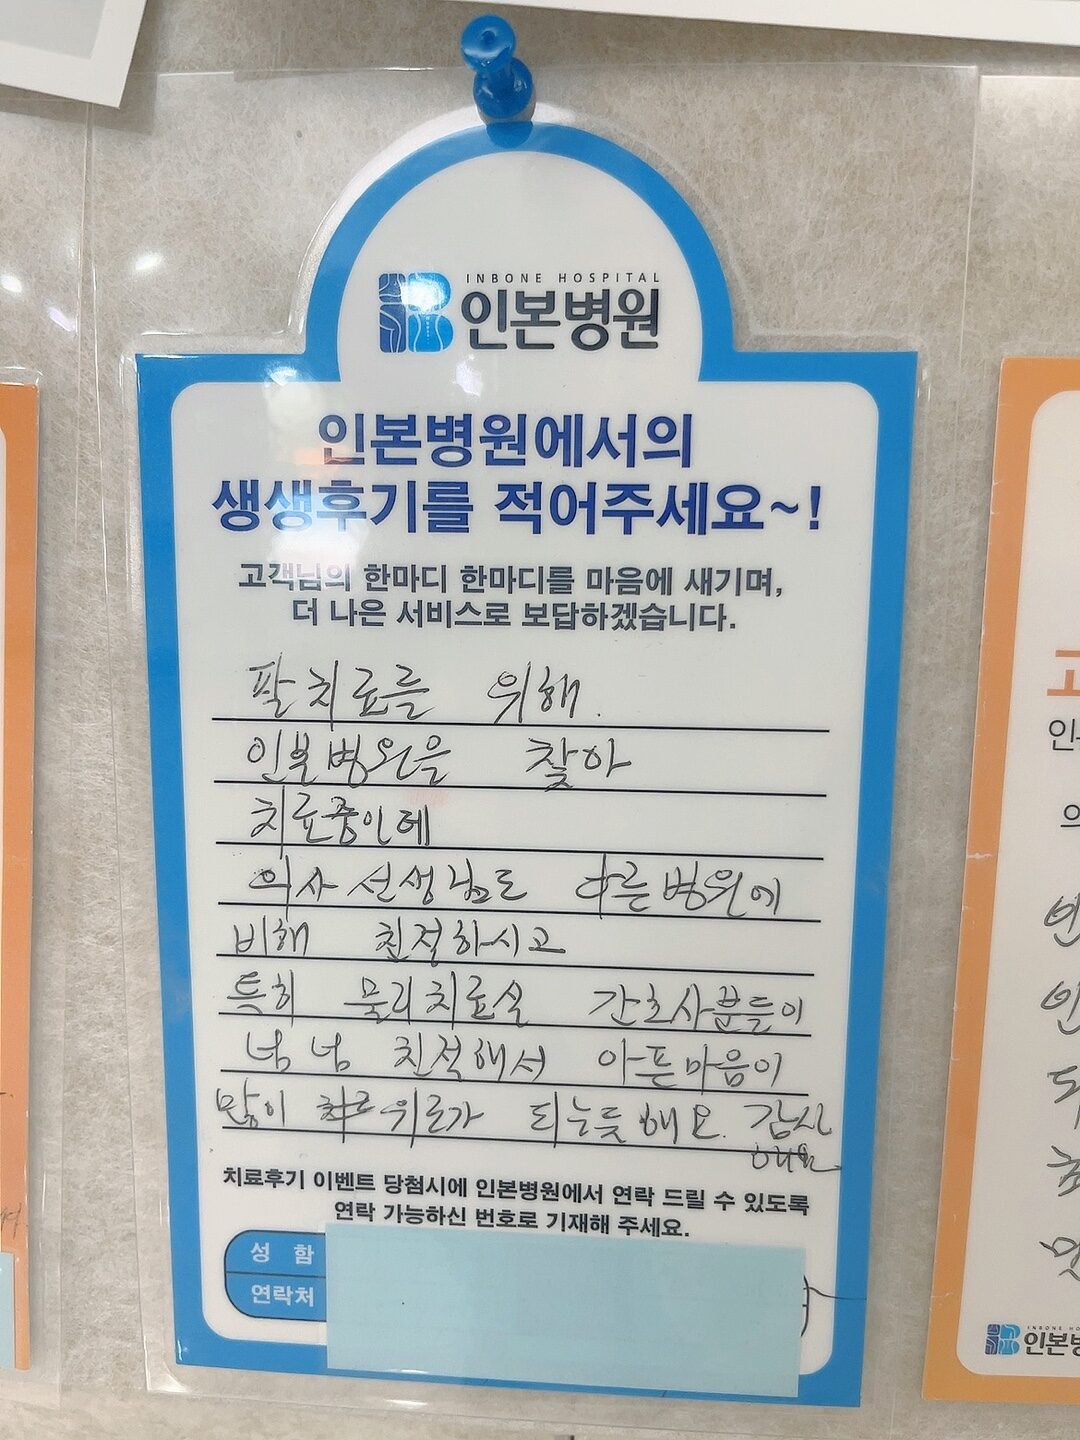 INBONE HOSPITAL
인본병원
인본병원에서의
생생후기를 적어주세요~!
고객님의 한마디 한마디를 마음에 새기며,
더 나은 서비스로 보답하겠습니다.
팔치료를 위해.
인본병원을 찾아
치료중인데
의사 선생님도 다른병원에
비해 친절하시고
특히 물리치료실 간호사분들이
넘넘 친적해서 아픈마음이
많이 위로가 되는듯해요. 감사
해요
치료후기 이벤트 당첨시에 인본병원에서 연락 드릴 수 있도록
연락 가능하신 번호로 기재해 주세요.
성 함
연락처